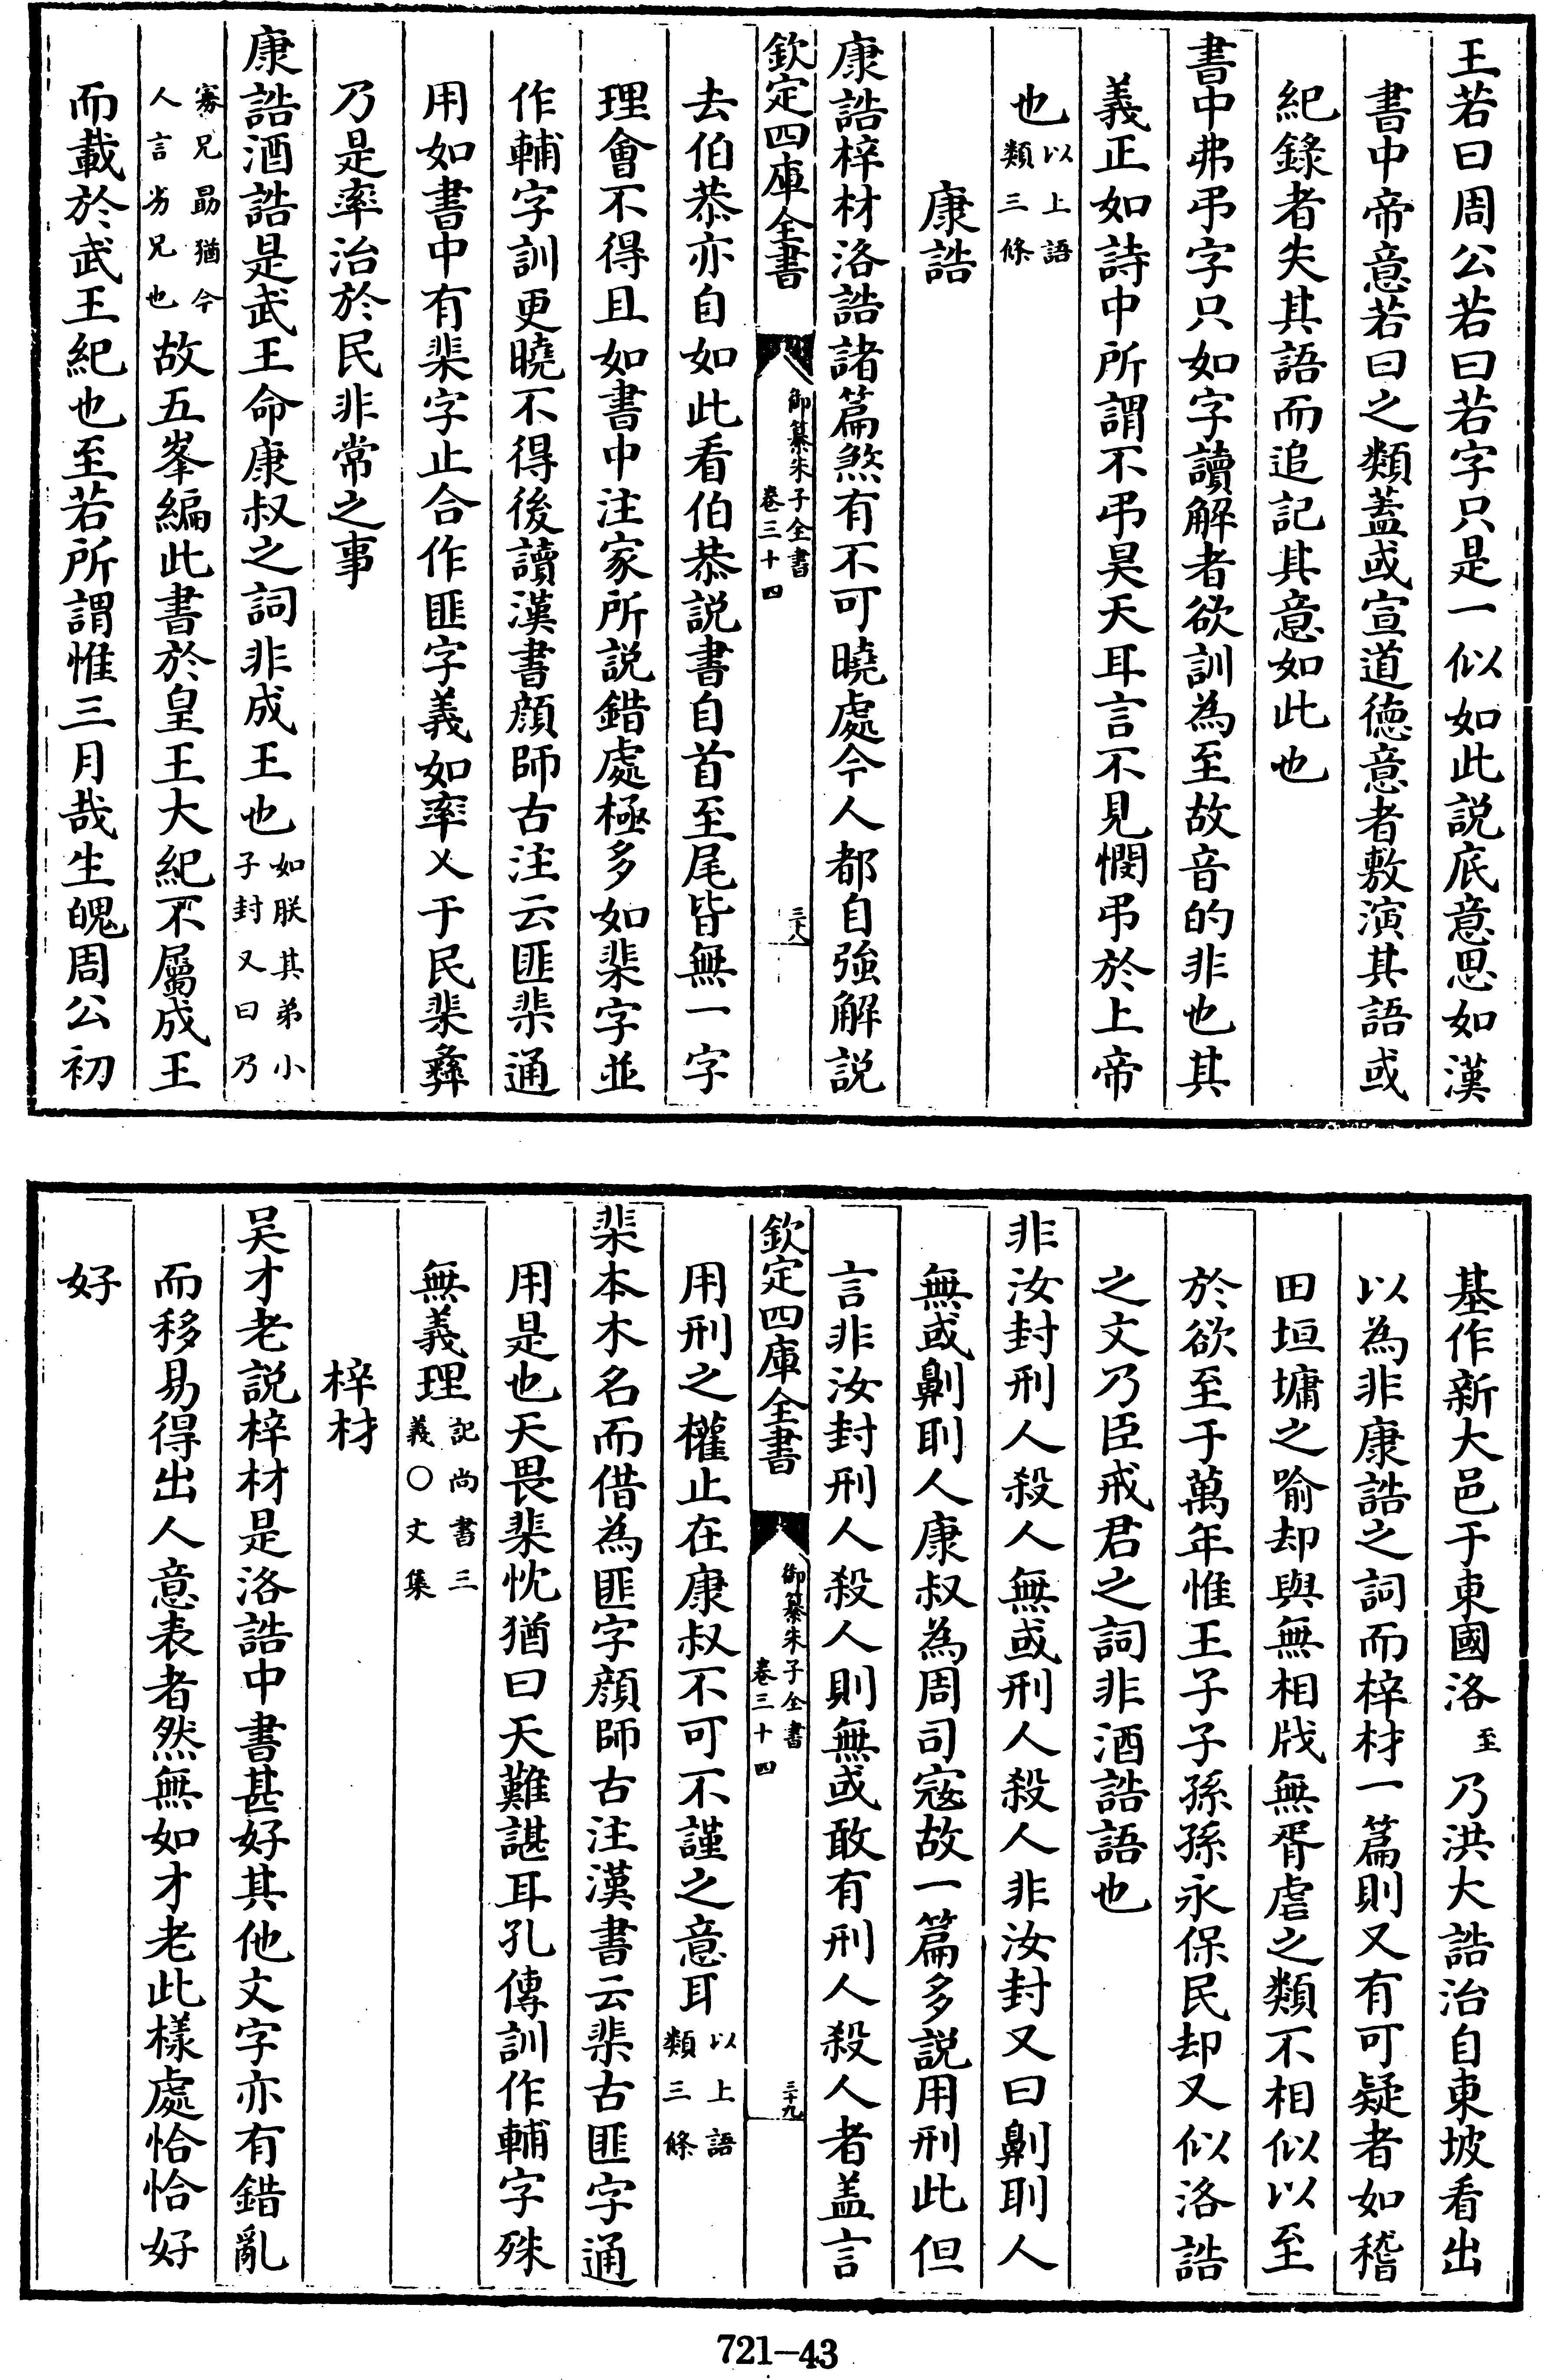 王若曰周公若曰若字只是一似如此説底意思如漢
書中帝意若曰之類蓋或宣道徳意者敷演其語或
紀錄者失其語而追記其意如此也
書中弗弔字只如字讀解者欲訓為至故音的非也其
義正如詩中所謂不弔昊天耳言不見憫弔於上帝
也以上語類三條
康誥
康誥梓材洛誥諸篇煞有不可曉處今人都自強解説
欽定四庫全書 御纂朱子全書 卷三十四 三十八
去伯恭亦自如此看伯恭説書自首至尾皆無一字
理會不得且如書中注家所説錯處極多如棐字並
作輔字訓更曉不得後讀漢書顔師古注云匪棐通
用如書中有棐字止合作匪字義如率乂于民棐彝
乃是率治於民非常之事
康誥酒誥是武王命康叔之詞非成王也如朕其弟小子封又曰乃
寡兄勗猶今人言劣兄也故五峯編此書於皇王大紀不屬成王
而載於武王紀也至若所謂惟三月哉生魄周公初
基作新大邑于東國洛至乃洪大誥治自東坡看出
以為非康誥之詞而梓材一篇則又有可疑者如稽
田垣墉之喻却與無相戕無胥虐之類不相似以至
於欲至于萬年惟王子子孫孫永保民却又似洛誥
之文乃臣戒君之詞非酒誥語也
非汝封刑人殺人無或刑人殺人非汝封又曰劓刵人
無或劓刵人康叔為周司寇故一篇多説用刑此但
言非汝封刑人殺人則無或敢有刑人殺人者盖言
欽定四庫全書 御纂朱子全書 卷三十四 三十九
用刑之權止在康叔不可不謹之意耳以上語類三條
棐本木名而借為匪字顔師古注漢書云棐古匪字通
用是也天畏棐忱猶曰天難諶耳孔傳訓作輔字殊
無義理記尚書三義〇文集
梓材
吴才老説梓材是洛誥中書甚好其他文字亦有錯亂
而移易得出人意表者然無如才老此樣處恰恰好
好
721-43